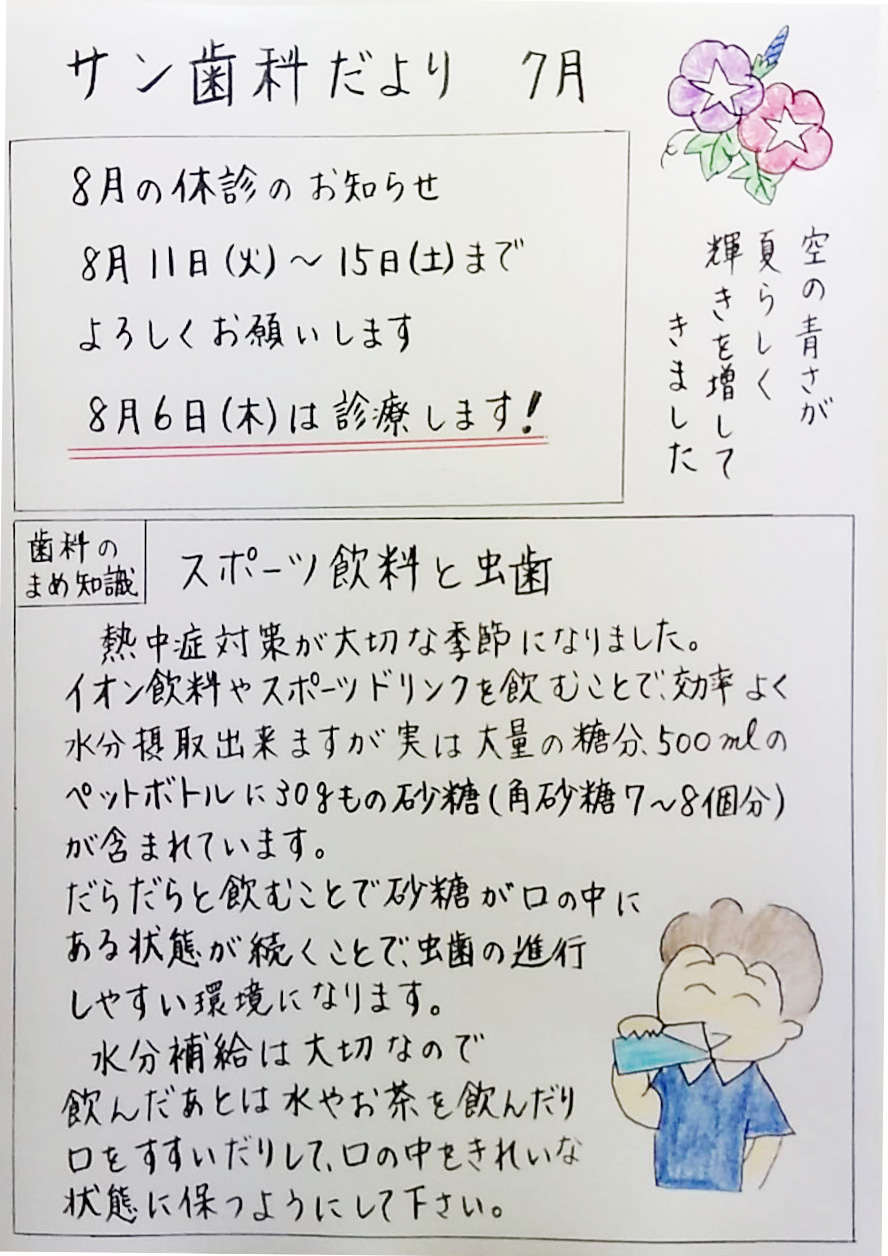 サン歯科だより 7月
8月の休診のお知らせ
8月11日(火)～15日(土)まで
よろしくお願いします
8月6日(木)は診療します!
空の青さが
夏らしく
輝きを増して
きました
歯科の
まめ知識
スポーツ飲料と虫歯
熱中症対策が大切な季節になりました。
イオン飲料やスポーツドリンクを飲むことで、効率よく
水分摂取出来ますが実は大量の糖分、500mlの
ペットボトルに30gもの砂糖(角砂糖7～8個分)
が含まれています。
だらだらと飲むことで砂糖が口の中に
ある状態が続くことで、虫歯の進行
しやすい環境になります。
水分補給は大切なので
飲んだあとは水やお茶を飲んだり
口をすすいだりして、口の中をきれいな
状態に保つようにして下さい。